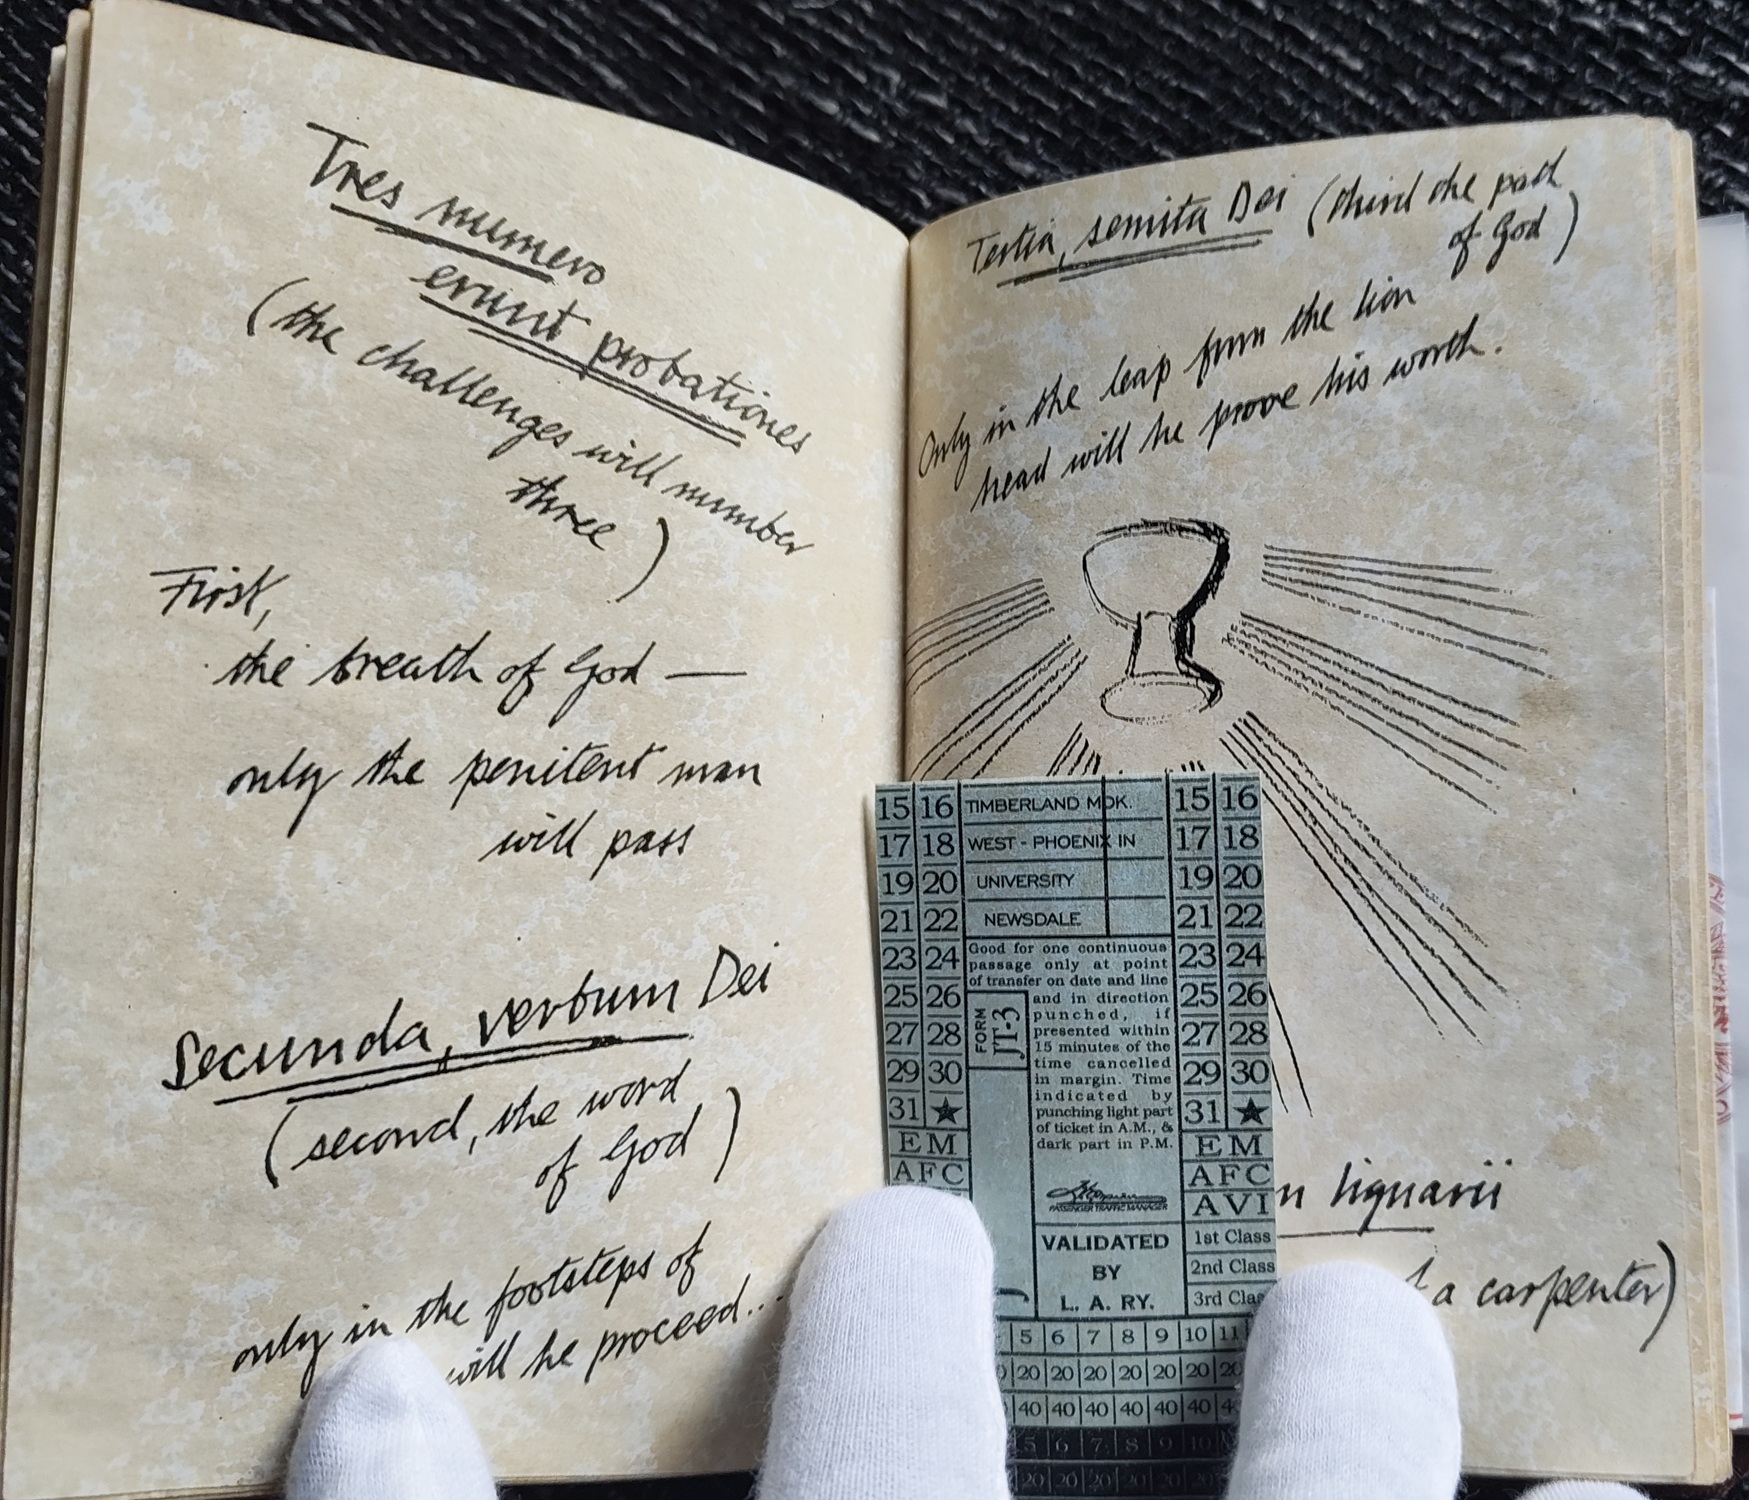 Tres numero
erunt probationes
(the challenges will number
three)
First,
the breath of God —
only the penitent man
will pass
Secunda, verbum Dei
(second, the word
of God)
only in the footsteps of
will he proceed...
Tertia, semita Dei (third the path
of God)
Only in the leap from the lion
head will he prove his worth.
n lignarii
a carpenter)
15 16 TIMBERLAND MDK. 15 16
17 18 WEST - PHOENIX IN 17 18
19 20 UNIVERSITY 19 20
21 22 NEWSDALE 21 22
23 24 23 24
25 26 25 26
27 28 27 28
29 30 29 30
31 ★ 31 ★
EM EM
AFC AFC
AVI
Good for one continuous
passage only at point
of transfer on date and line
and in direction
punched, if
presented within
15 minutes of the
time cancelled
in margin. Time
indicated by
punching light part
of ticket in A.M., &
dark part in P.M.
FORM
JT-3
PASSENGER TRAFFIC MANAGER
VALIDATED
BY
L. A. RY.
1st Class
2nd Class
3rd Cla
5 6 7 8 9 10 11
20 20 20 20 20 20 20
40 40 40 40 40 40 4
5 6 7 8 9 10
20 20 20 20 20 20